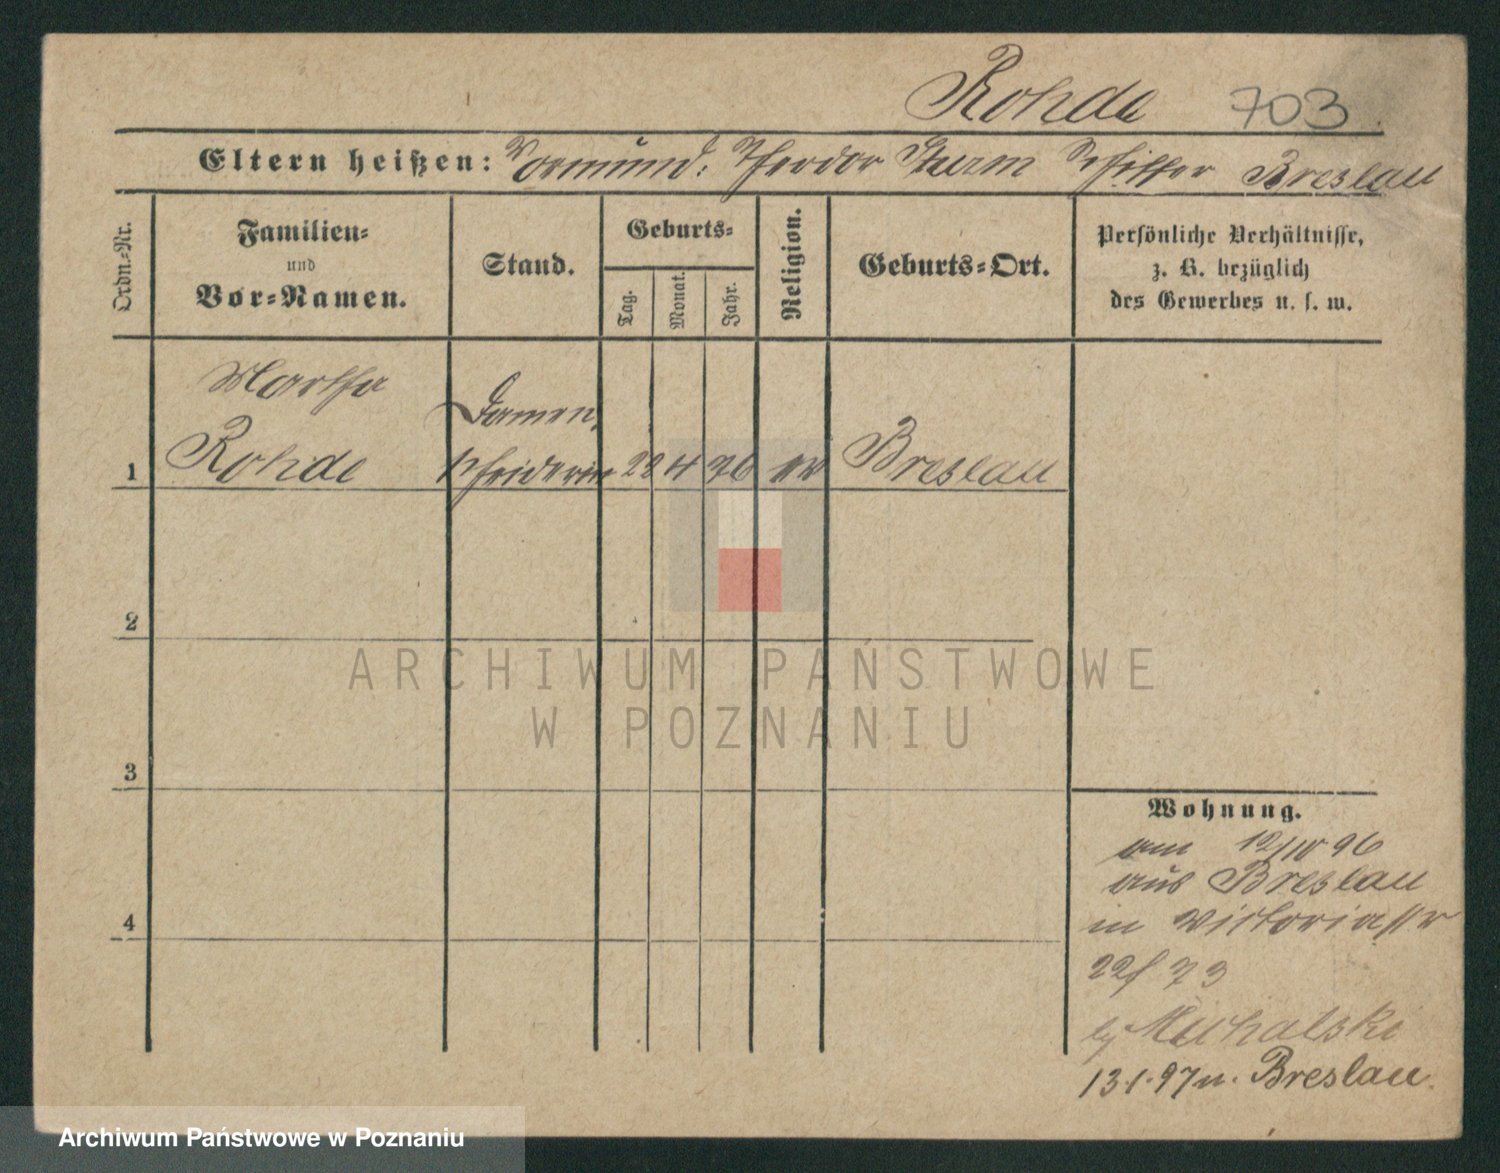 Rohde 703
Eltern heißen: Vormund: Theodor Sturm Schiffer Breslau
Ordn.-Nr.
Familien-
und
Vor-Namen.
Stand.
Geburts-
Tag.
Monat.
Jahr.
Religion.
Geburts-Ort.
Persönliche Verhältnisse,
z. B. bezüglich
des Gewerbes u. s. w.
Martha
Rohde
Damen
schneiderin
4 76 ev Breslau
1
2
3
4
Wohnung.
am 12/10 96
aus Breslau
in Victoriastr
22/73
by Michalski
13.1.97 n. Breslau.
ARCHIWUM PAŃSTWOWE
W POZNANIU
Archiwum Państwowe w Poznaniu